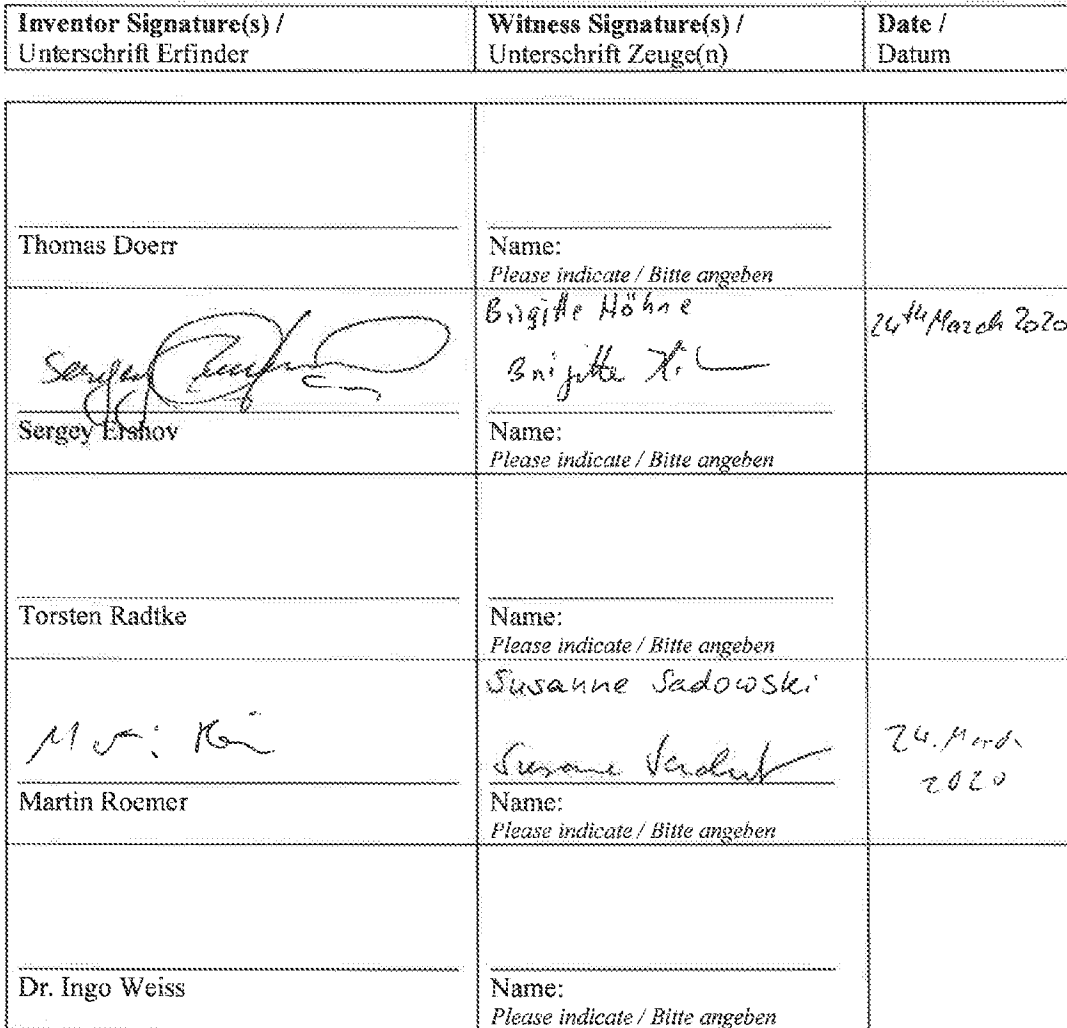 Inventor Signature(s) /
Unterschrift Erfinder
Witness Signature(s) /
Unterschrift Zeuge(n)
Date /
Datum
Thomas Doerr
Name:
Please indicate / Bitte angeben
Sergey
Sergey Ershov
Brigitte Höhne
Brigitte
Name:
Please indicate / Bitte angeben
24th March 2020
Torsten Radtke
Name:
Please indicate / Bitte angeben
Martin Roemer
Susanne Sadowski
Susanne
Name:
Please indicate / Bitte angeben
24. March
2020
Dr. Ingo Weiss
Name:
Please indicate / Bitte angeben